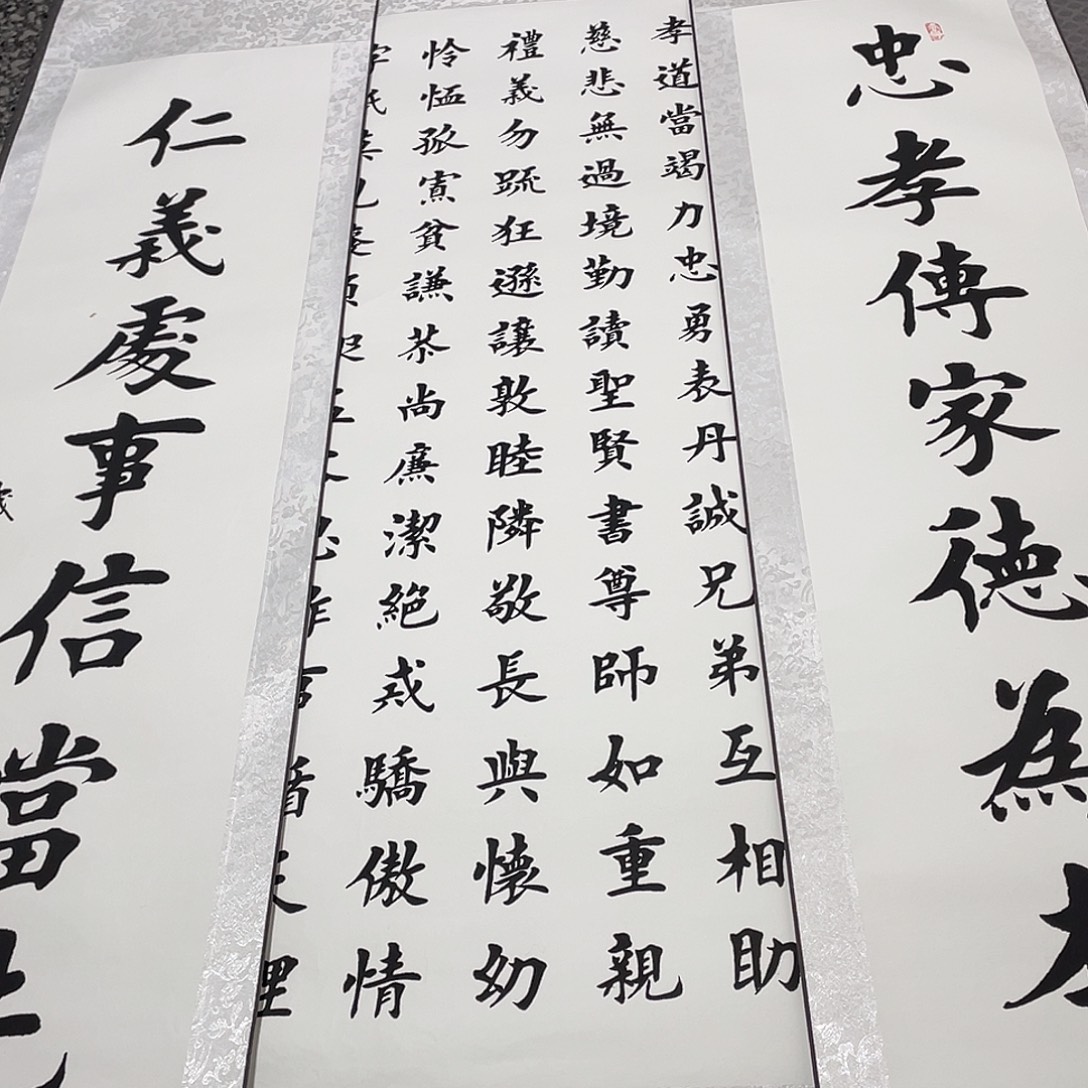 忠孝傳家徳為
孝道當竭力忠勇表丹誠兄弟互相助
慈悲無過境勤讀聖賢書尊師如重親
禮義勿疏狂遜讓敦睦隣敬長與懷幼
怜恤孤寡貧謙恭尚廉潔絕戒驕傲情
仁義處事信當